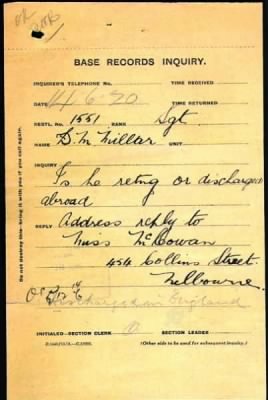 BASE RECORDS INQUIRY.
INQUIRER'S TELEPHONE NO. TIME RECEIVED
DATE 14/6/20 TIME RETURNED
REGTL. NO. 1551 RANK Sgt
NAME D. M. Millar UNIT
INQUIRY
Is he retng or discharged
abroad
REPLY Address reply to
Miss McCowan
454 Collins Street.
Melbourne.
Discharged in England
INITIALED—SECTION CLERK SECTION LEADER
(Other side to be used for subsequent inquiry.)
Do not destroy this—bring it with you if you call again.